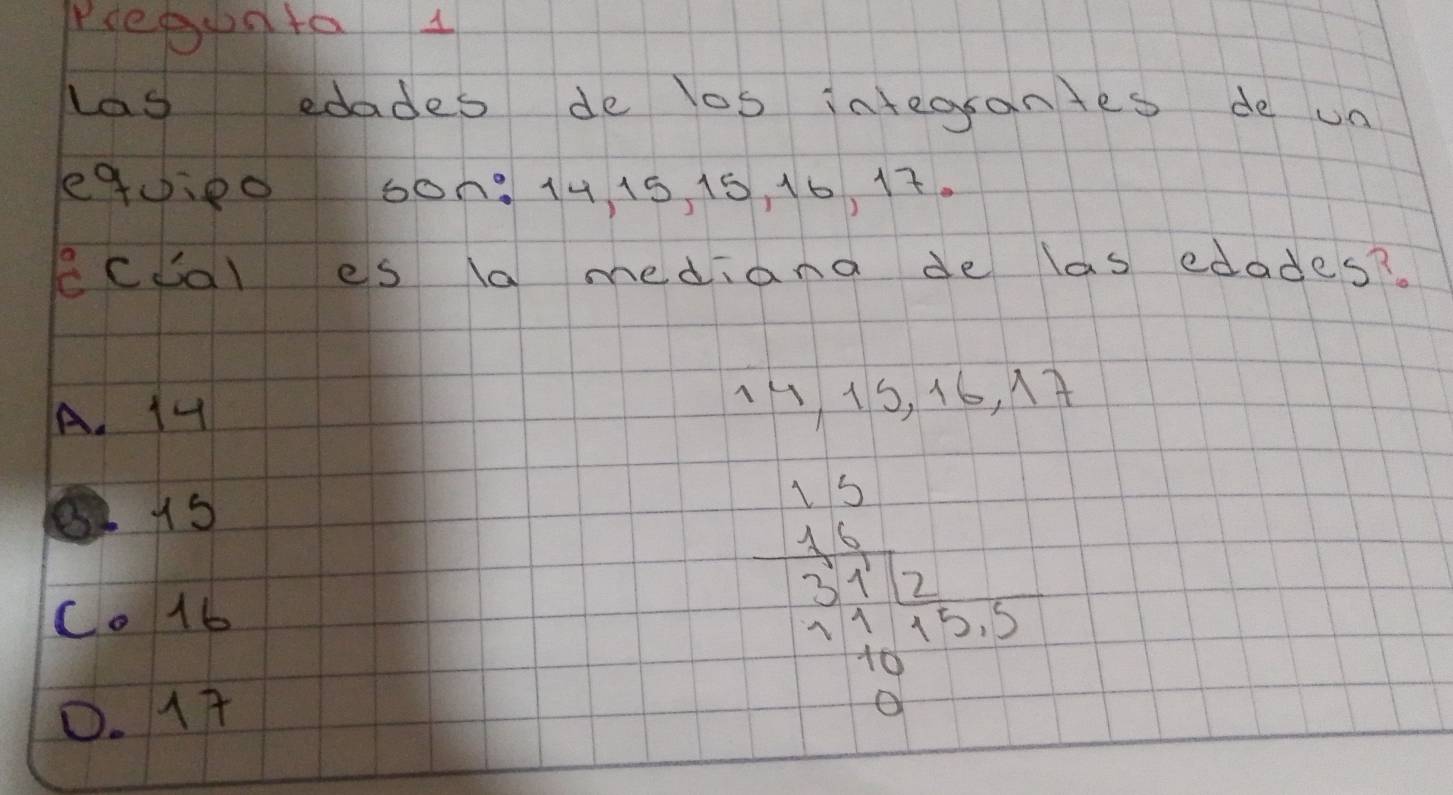 Pregunta 1
Las edades de los integrantes de un
equipo son: 14, 15, 15, 16, 17.
¿Cúal es la mediana de las edades?.
A. 14
14, 15, 16, 17
B. 15
15
16
31 2
C. 16
11 15,5
10
D. 17
0